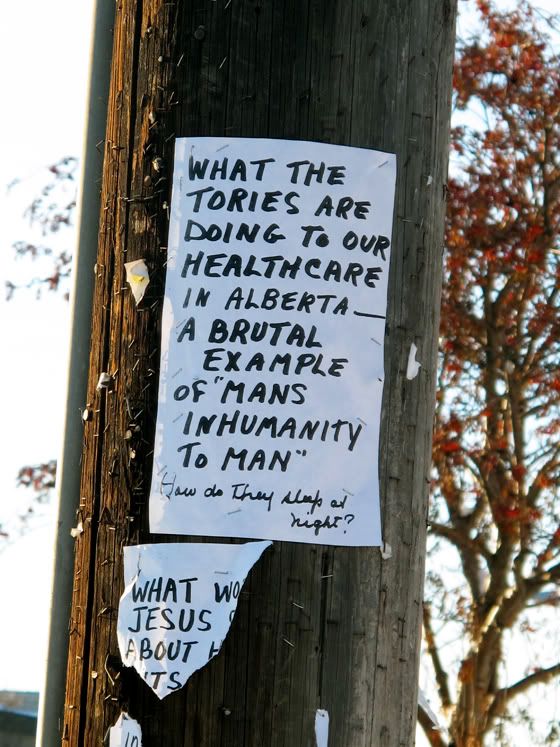 WHAT THE
TORIES ARE
DOING TO OUR
HEALTHCARE
IN ALBERTA—
A BRUTAL
EXAMPLE
OF "MANS
INHUMANITY
TO MAN"
How do They sleep at
night?
WHAT WO
JESUS
ABOUT H
ITS
10